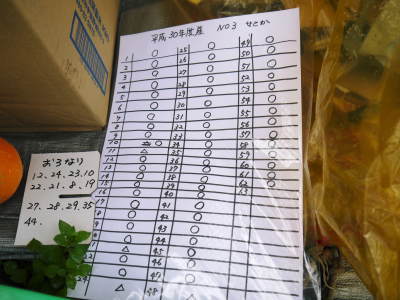 平成30年度産 NO3 せとか
1 ○ 25 ○ 49 ○
2 ○ 26 ○ 50 ○
3 ○ 27 ○ 51 ○
4 ○ 28 ○ 52 ○
5 ○ 29 ○ 53 ○
6 ○ 30 ○ 54 ○
7 ○ 31 ○ 55 ○
8 ○ 32 ○ 56 ○
9 ○ 33 ○ 57 ○
10 ○ 34 ○ 58 ○
11 △ 35 ○ 59 ○
12 ○ 36 ○ 60 ○
13 ○ 37 ○ 61 ○
14 ○ 38 ○ 62 ○
15 ○ 39 ○
16 ○ 40 ○
17 ○ 41 ○
○ 42 ○
○ 43 ○
○ 44 ○
△ 45 ○
○ 46 ○
○ 47 ○
△ 48 ○
おうなり
12.24.23.10
22.21.8.19
27.28.29.35
44.